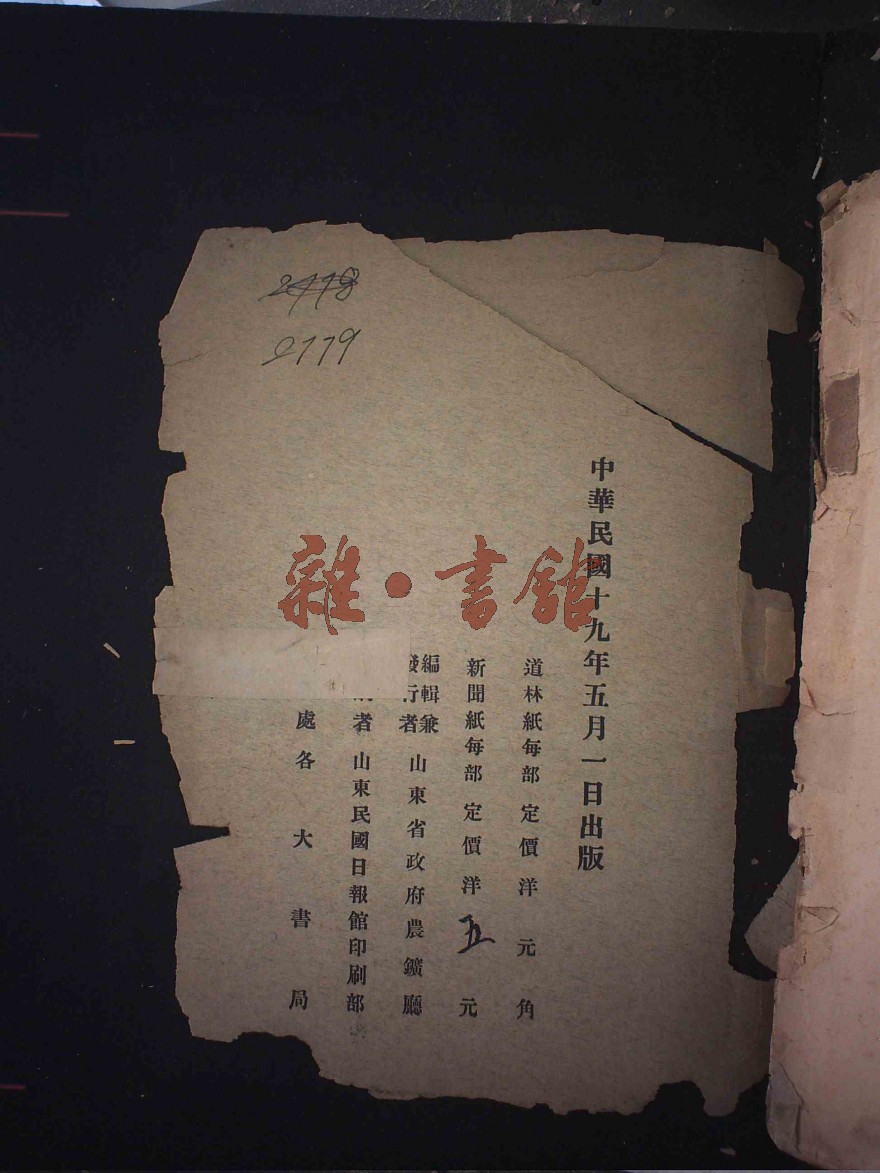 2778
2779
中華民國十九年五月一日出版
道林紙每部定價洋 元 角
新聞紙每部定價洋五元
編輯兼
發行者 山東省政府農鑛廳
者 山東民國日報館印刷部
處 各大書局
雜·書館